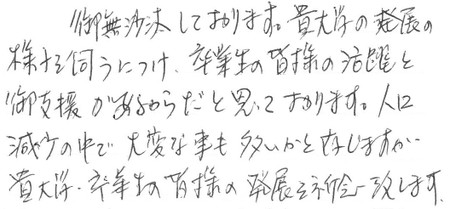 御無沙汰しております。貴大学の発展の
様子を伺うにつけ、卒業生の皆様の活躍と
御支援があるからだと思っております。人口
減少の中で大変な事も多いかと存じますが…
貴大学・卒業生の皆様の発展を祈念致します。